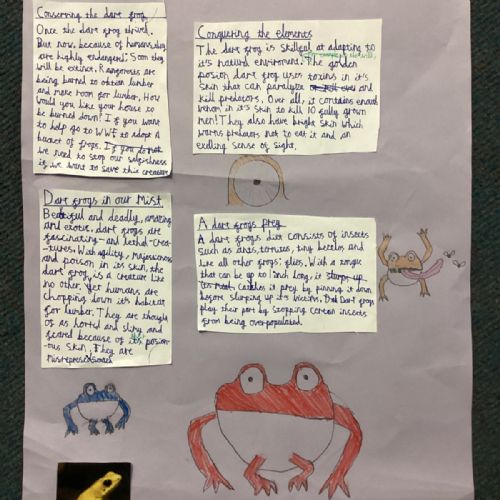 Conserving the dart frog!
Once the dart frog thrived.
But now, because of humans, they
are highly endangered. Soon they
will be extinct. Rangerores are
being burned to obtain lumber
and make room for lumber. How
would you like your house to
be burned down? If you want
to help go to WWF to adopt a
bucket of frogs. If you do not
we need to stop our selfishness
if we want to save this creature
Conquering the elements
The dart frog is skillful at adapting to
it's natural enviroment. The golden
poison dart frog uses toxins in it's
skin that can paralyze and
kill predators. Over all, it contains enough
venom in it's skin to kill 10 fully grown
men! They also have bright skin which
warns predators not to eat it and an
exelling sense of sight.
Dart frogs in our Mist
Beautiful and deadly, amazing
and exotic, dart frogs are
fascinating and lethal crea-
-tures. With agility, Majesticness
and poison in its skin, the
dart frog is a creature like
no other. Yet humans are
chopping down it's habitat
for lumber. They are thought
of as horrid and slimy and
feared because of its poison-
-ous skin. They are
Misrepresented
A dart frogs prey
A dart frogs diet consists of insects
such as ants, termites, tiny beetles and
like all other frogs; flies. With a tongue
that can be up to 1 inch long, it
catches it prey by pinning it down
before slurping up it's victims. Dart frogs
play their part by stopping certain insects
from being overpopulated.